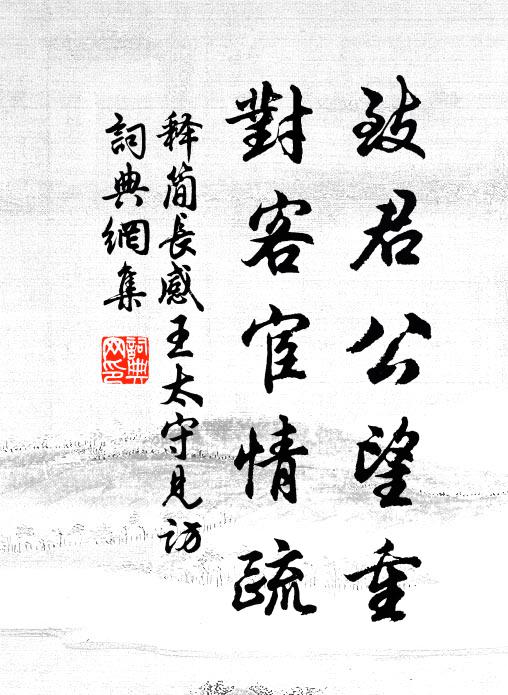 致君公望重
對客宦情疏
释简長感王太守見訪
詞典網集
詞典網印